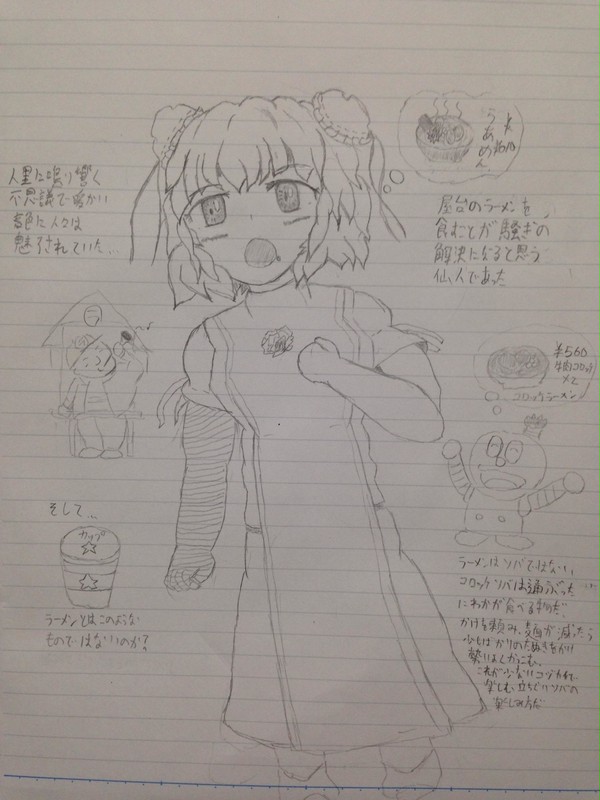 人里に鳴り響く
不思議で暖かい
音色に人々は
魅了されていた…
らあめん
屋台のラーメンを
食むことが騒ぎの
解決になると思う
仙人であった
ラ
¥560
牛肉コロッケ
×2
コロッケラーメン
そして…
カップ
ラーメンとはこのような
ものではないのか?
ラーメンはソバではない、
コロッケソバは通ぶった
にわかが食べるものだ、
かけを頼み、麺が減ったら
少しばかりのたぬきをかけ
勢いよくかっこむ、
これが少ないコヅカイで
楽しむ立ちぐいソバの
楽しみ方だ